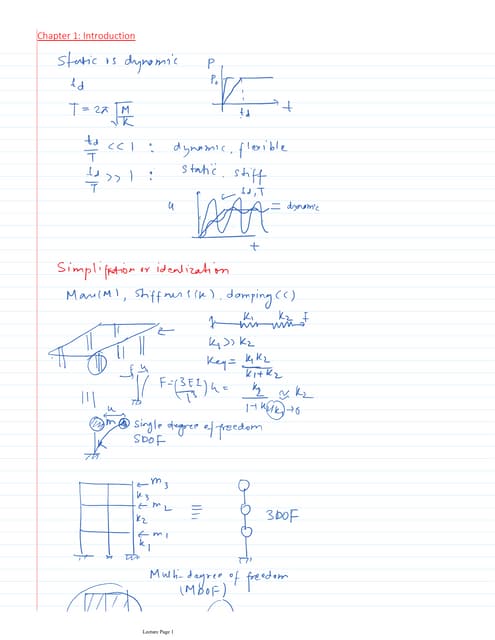 Chapter 1: Introduction
Static vs dynamic
P
P₀
td
t
td
T = 2π √(M/K)
td/T << 1 : dynamic, flexible
td/T >> 1 : static, stiff
td, T
u
= dynamic
t
Simplifiation or idealization
Mass(M), Stiffness(K), damping(c)
K₁ K₂ f
K₁ >> K₂
Keq = K₁K₂/(K₁+K₂)
f u
F = (3EI/L³) u
= K₂/(1+K₂/K₁) ≈ K₂
→0
u
m
K
Single degree of freedom
SDOF
← m₃
K₃
← m₂
K₂
← m₁
K₁
≡
3DOF
Multi-degree of freedom
(MDOF)
Lecture Page 1